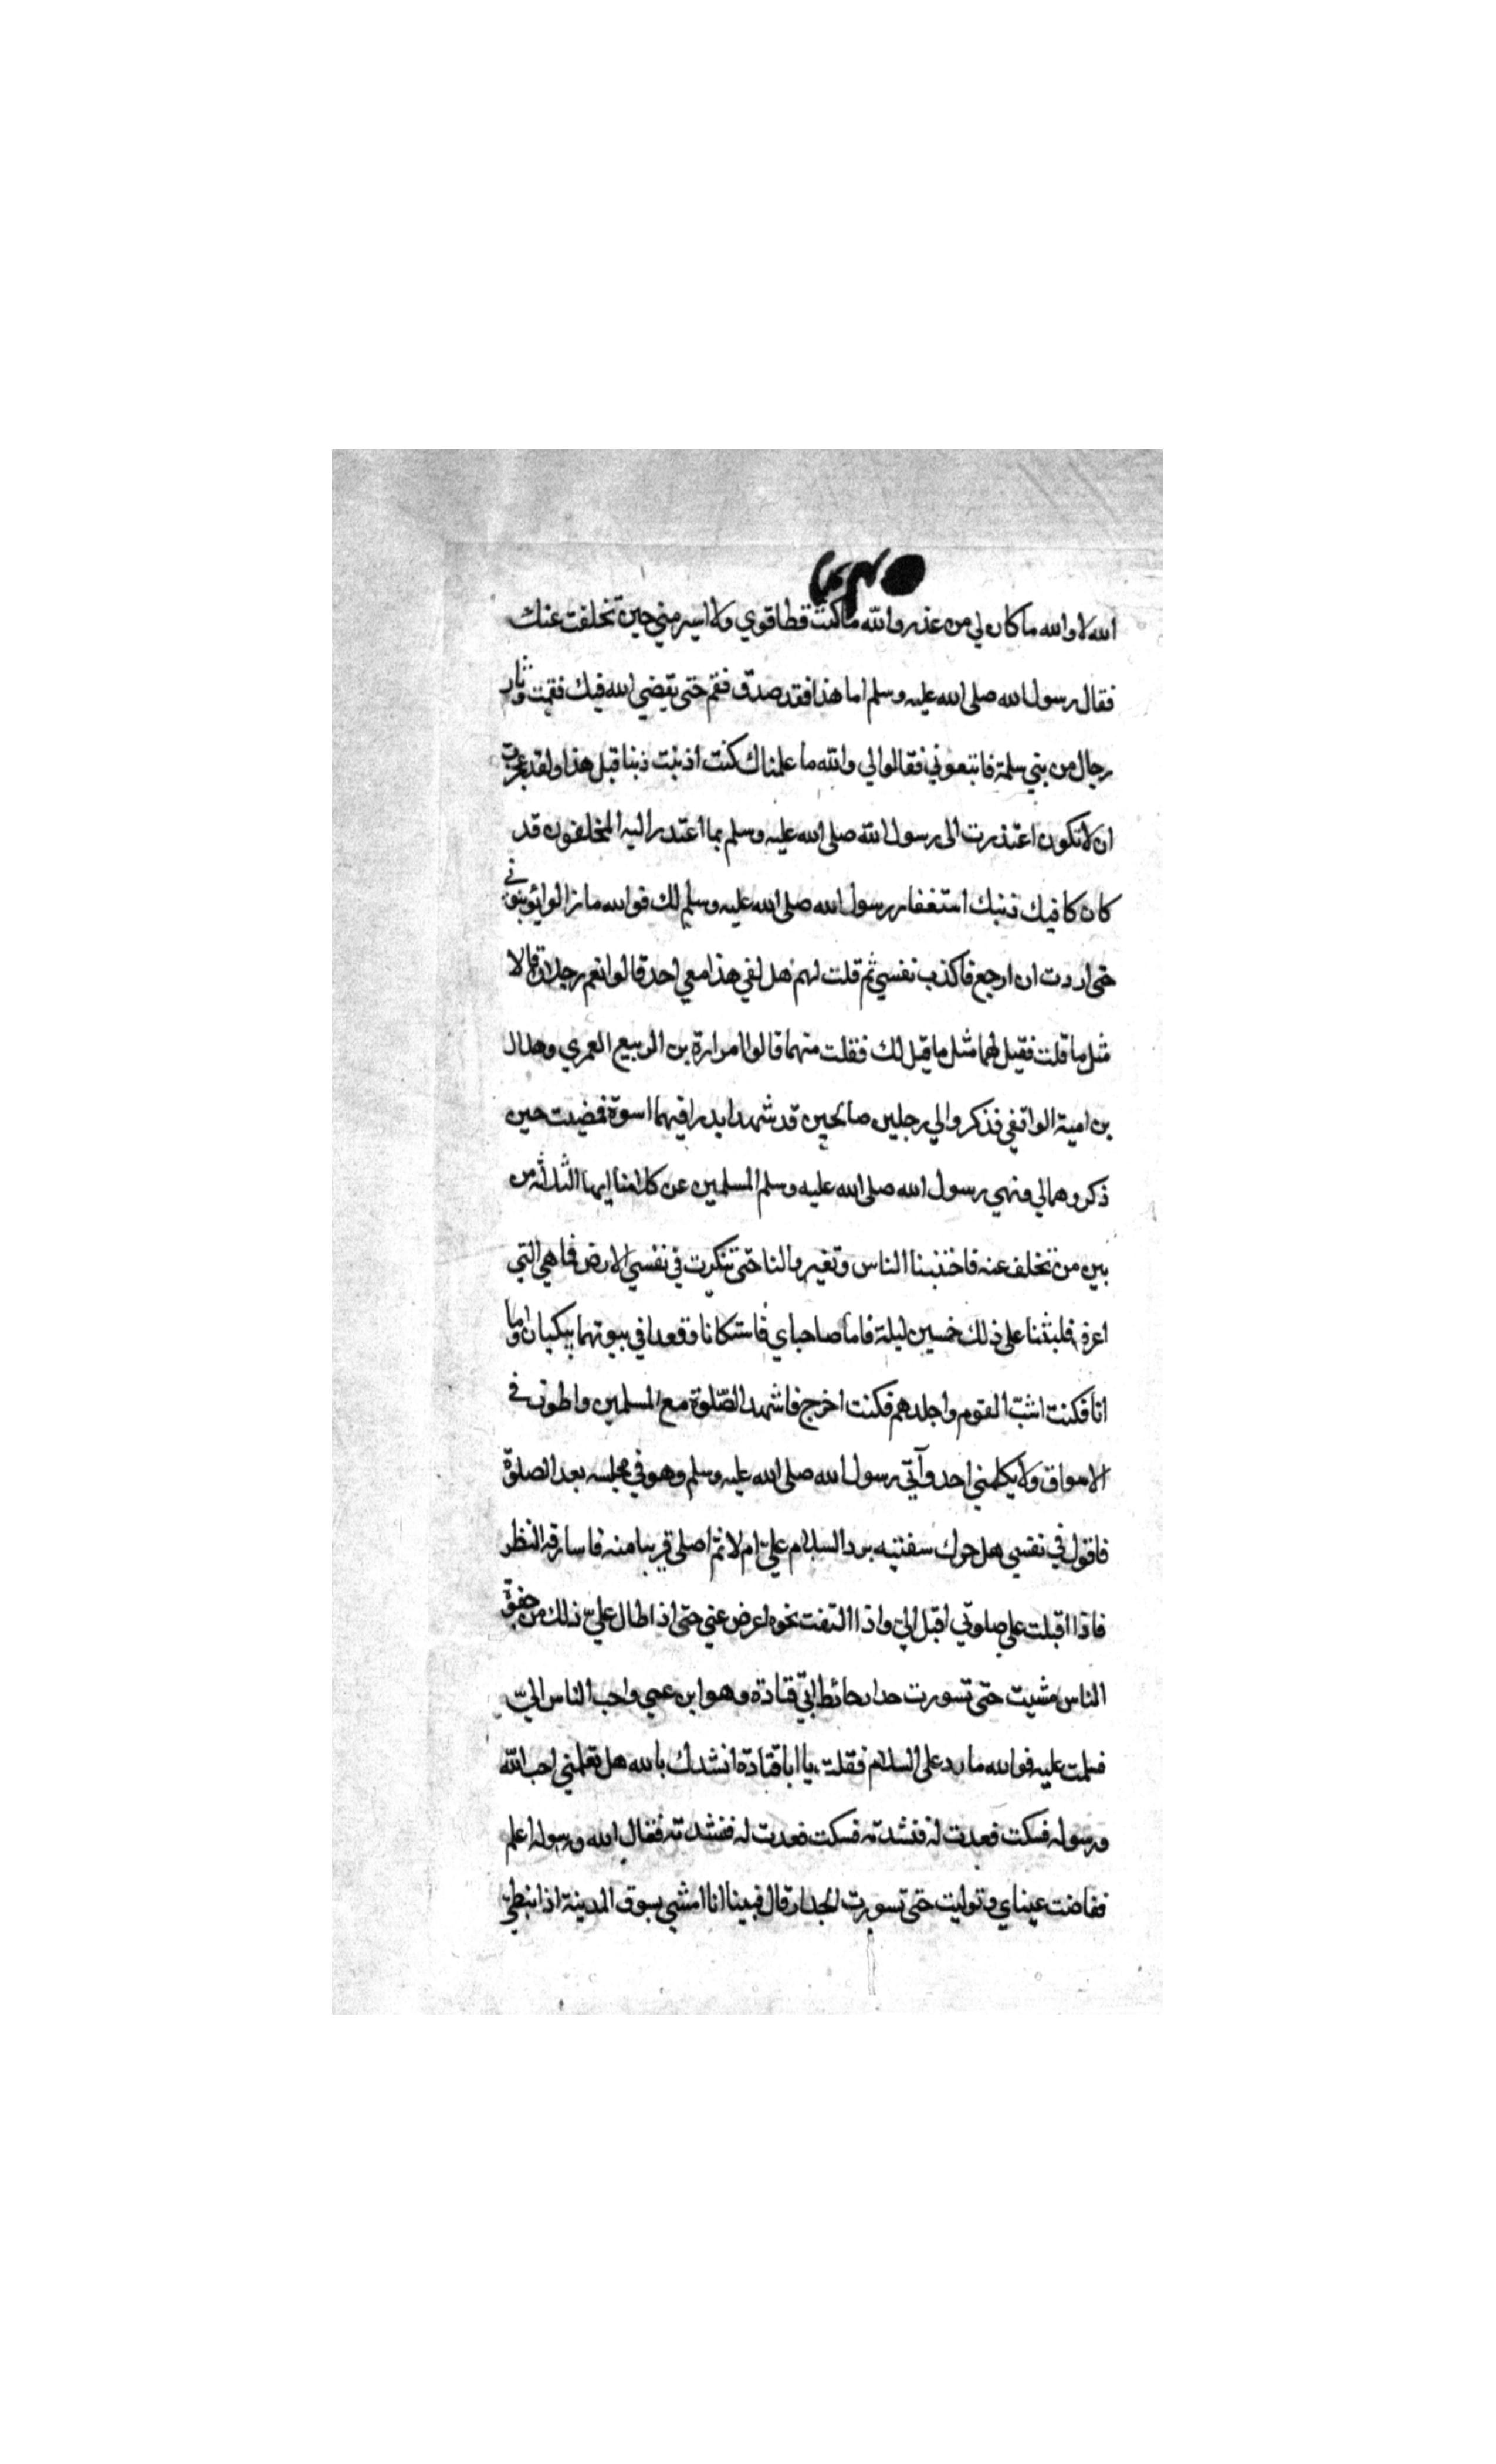 الله لا والله ما كان لي من عذر والله ما كنت قط اقوي ولا ايسر مني حين تخلفت عنك
فقال رسول الله صلى الله عليه وسلم اما هذا فقد صدق فقم حتى يقضي الله فيك فقمت وثار
رجال من بني سلمة فاتبعوني فقالوا لي والله ما علمناك كنت اذنبت ذنبا قبل هذا ولقد عجزت
ان لا تكون اعتذرت الى رسول الله صلى الله عليه وسلم بما اعتذر اليه المخلفون قد
كان كافيك ذنبك استغفار رسول الله صلى الله عليه وسلم لك فوالله ما زالوا يؤنبوني
حتى اردت ان ارجع فاكذب نفسي ثم قلت لهم هل لقي هذا معي احد قالوا نعم رجلان قالا
مثل ما قلت فقيل لهما مثل ما قيل لك فقلت منهما قالوا مرارة بن الربيع العمري وهلال
بن امية الواقفي فذكروا لي رجلين صالحين قد شهدا بدرا فيهما اسوة فمضيت حين
ذكروهما لي ونهي رسول الله صلى الله عليه وسلم المسلمين عن كلامنا ايها الثلثة من
بين من تخلف عنه فاجتنبنا الناس وتغيروا لنا حتى تنكرت في نفسي الارض فما هي التي
اعرف فلبثنا على ذلك خمسين ليلة فاما صاحباي فاستكانا وقعدا في بيوتهما يبكيان واما
انا فكنت اشبّ القوم واجلدهم فكنت اخرج فاشهد الصّلوة مع المسلمين واطوف في
الاسواق ولا يكلمني احد وآتي رسول الله صلى الله عليه وسلم وهو في مجلسه بعد الصلوة
فاقول في نفسي هل حرك شفتيه برد السلام عليّ ام لا ثم اصلى قريبا منه فاسارقه النظر
فاذا اقبلت على صلوتي اقبل اليّ واذا التفت نحوه اعرض عني حتى اذا طال عليّ ذلك من جفوة
الناس مشيت حتى تسورت جدار حائط ابي قتادة وهو ابن عمي واحب الناس اليّ
فسلمت عليه فوالله ما رد على السلام فقلت يا ابا قتادة انشدك بالله هل تعلمني احب الله
ورسوله فسكت فعدت له فنشدته فسكت فعدت له فنشدته فقال الله ورسوله اعلم
ففاضت عيناي وتوليت حتى تسورت الجدار قال فبينا انا امشي بسوق المدينة اذا نبطيّ